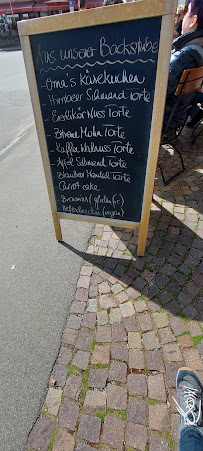 Aus unserer Backstube
- Oma's Käsekuchen
- Himbeer Schmand Torte
- Eierlikör Nuss Torte
- Zitrone Mohn Torte
- Kaffee Walnuss Torte
- Apfel Schmand Torte
- Blaubeer Mandel Torte
- Carrot cake
- Brownies (glutenfr.)
(vegan)